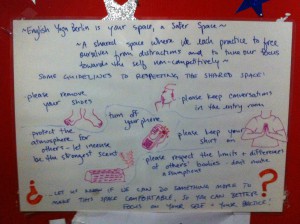 ~English Yoga Berlin is your space, a Safer Space~
~A shared space where we each practice to free
ourselves from distractions and to tune our focus
towards the self non-competitively~
SOME GUIDELINES TO RESPECTING THE SHARED SPACE:
please remove
your shoes
please keep conversations
in the entry room
turn off
your phone
protect the
atmosphere for
others - let incense
be the strongest scent
please keep your
shirt on
please respect the limits + differences
of others' bodies - don't make
assumptions
...LET US KNOW IF WE CAN DO SOMETHING MORE TO
MAKE THIS SPACE COMFORTABLE, SO YOU CAN BETTER
FOCUS ON YOUR SELF + YOUR PRACTICE!